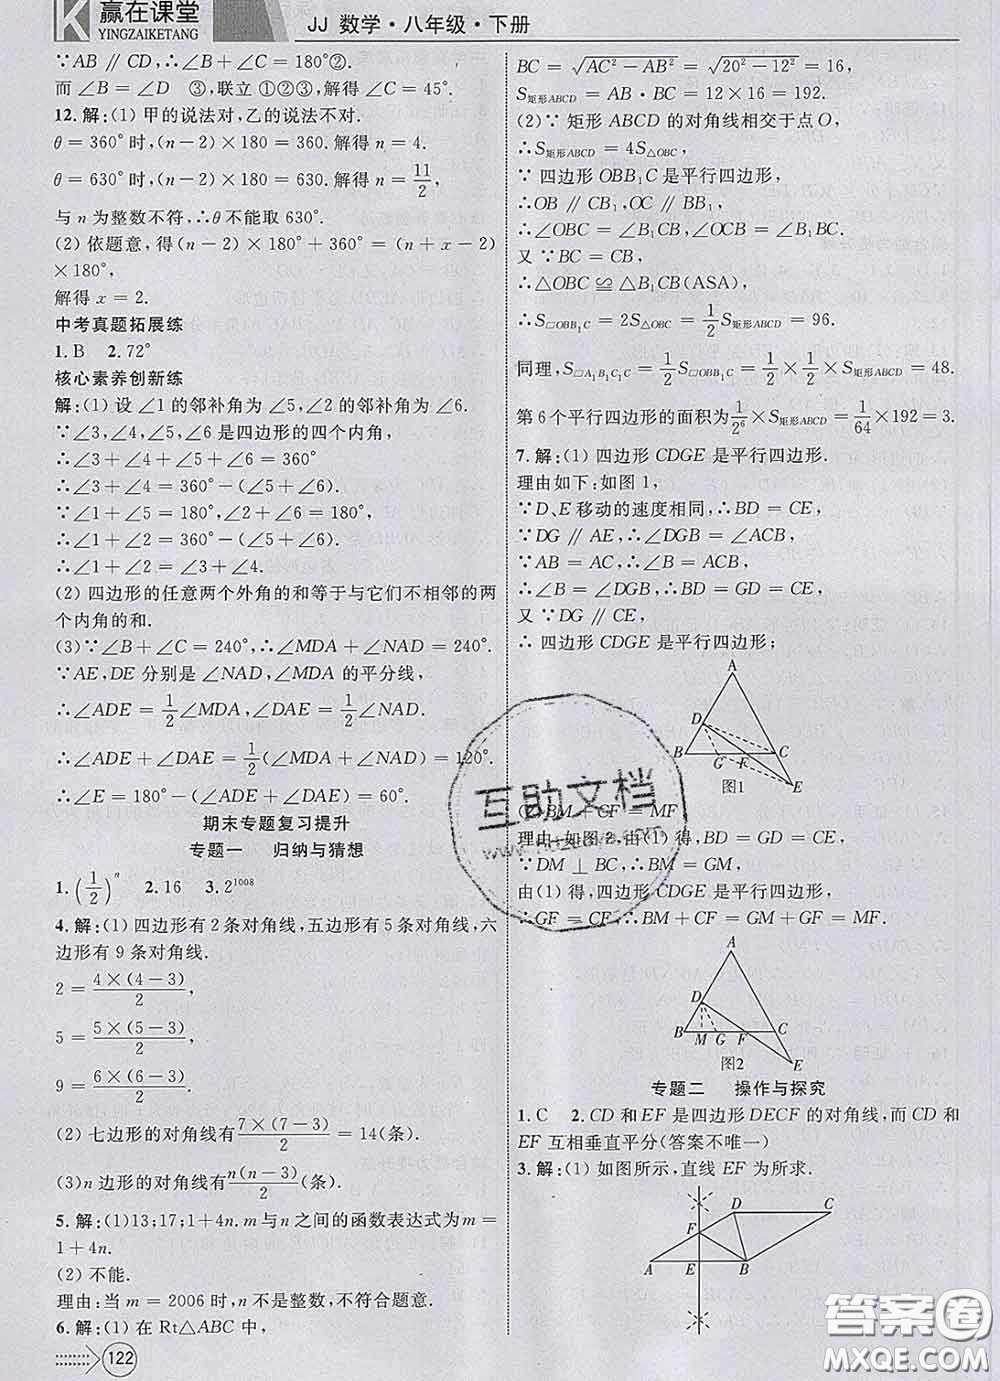 赢在课堂
YINGZAIKETANG
JJ 数学·八年级·下册
∵AB∥CD,∴∠B+∠C=180°②.
而∠B=∠D ③,联立①②③,解得∠C=45°.
12.解:(1)甲的说法对,乙的说法不对.
θ=360°时,(n-2)×180=360.解得n=4.
θ=630°时,(n-2)×180=630.解得n=11/2,
与n为整数不符,∴θ不能取630°.
(2)依题意,得(n-2)×180°+360°=(n+x-2)
×180°,
解得x=2.
中考真题拓展练
1.B 2.72°
核心素养创新练
解:(1)设∠1的邻补角为∠5,∠2的邻补角为∠6.
∵∠3,∠4,∠5,∠6是四边形的四个内角,
∴∠3+∠4+∠5+∠6=360°
∴∠3+∠4=360°-(∠5+∠6).
∵∠1+∠5=180°,∠2+∠6=180°,
∴∠1+∠2=360°-(∠5+∠6).
∴∠1+∠2=∠3+∠4.
(2)四边形的任意两个外角的和等于与它们不相邻的两
个内角的和.
(3)∵∠B+∠C=240°,∴∠MDA+∠NAD=240°.
∵AE,DE分别是∠NAD,∠MDA的平分线,
∴∠ADE=1/2∠MDA,∠DAE=1/2∠NAD.
∴∠ADE+∠DAE=1/2(∠MDA+∠NAD)=120°.
∴∠E=180°-(∠ADE+∠DAE)=60°.
期末专题复习提升
专题一 归纳与猜想
1.(1/2)^n 2.16 3.2^1008
4.解:(1)四边形有2条对角线,五边形有5条对角线,六
边形有9条对角线.
2=4×(4-3)/2,
5=5×(5-3)/2,
9=6×(6-3)/2.
(2)七边形的对角线有7×(7-3)/2=14(条).
(3)n边形的对角线有n(n-3)/2(条).
5.解:(1)13;17;1+4n.m与n之间的函数表达式为m=
1+4n.
(2)不能.
理由:当m=2006时,n不是整数,不符合题意.
6.解:(1)在Rt△ABC中,
122
BC=√(AC²-AB²)=√(20²-12²)=16,
S矩形ABCD=AB·BC=12×16=192.
(2)∵矩形ABCD的对角线相交于点O,
∴S矩形ABCD=4S△OBC,
∵四边形OBB₁C是平行四边形,
∴OB∥CB₁,OC∥BB₁,
∴∠OBC=∠B₁CB,∠OCB=∠B₁BC.
又∵BC=CB,
∴△OBC≌△B₁CB(ASA),
∴S□OBB₁C=2S△OBC=1/2S矩形ABCD=96.
同理,S□A₁B₁C₁C=1/2S□OBB₁C=1/2×1/2×S矩形ABCD=48.
第6个平行四边形的面积为1/2⁶×S矩形ABCD=1/64×192=3.
7.解:(1)四边形CDGE是平行四边形.
理由如下:如图1,
∵D、E移动的速度相同,∴BD=CE,
∵DG∥AE,∴∠DGB=∠ACB,
∵AB=AC,∴∠B=∠ACB,
∴∠B=∠DGB,∴BD=GD=CE,
又∵DG∥CE,
∴四边形CDGE是平行四边形;
A
D
B
G
F
C
E
图1
(2)BM+CF=MF
理由:如图2,由(1)得,BD=GD=CE,
∵DM⊥BC,∴BM=GM,
由(1)得,四边形CDGE是平行四边形,
∴GF=CF,∴BM+CF=GM+GF=MF.
A
D
B
M
G
F
C
E
图2
专题二 操作与探究
1.C 2.CD和EF是四边形DECF的对角线,而CD和
EF互相垂直平分(答案不唯一)
3.解:(1)如图所示,直线EF为所求.
D
C
F
A
E
B
互助文档
答案圈
MXQE.COM